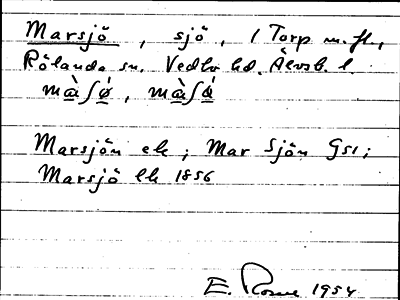 Marsjö, sjö, i Torp m.fl.,
Rölanda sn. Vedbo hd. Älvsb. l.
Marsjön ek; Mar Sjön Gs1;
Marsjö lk 1856
E. Rosne 1954